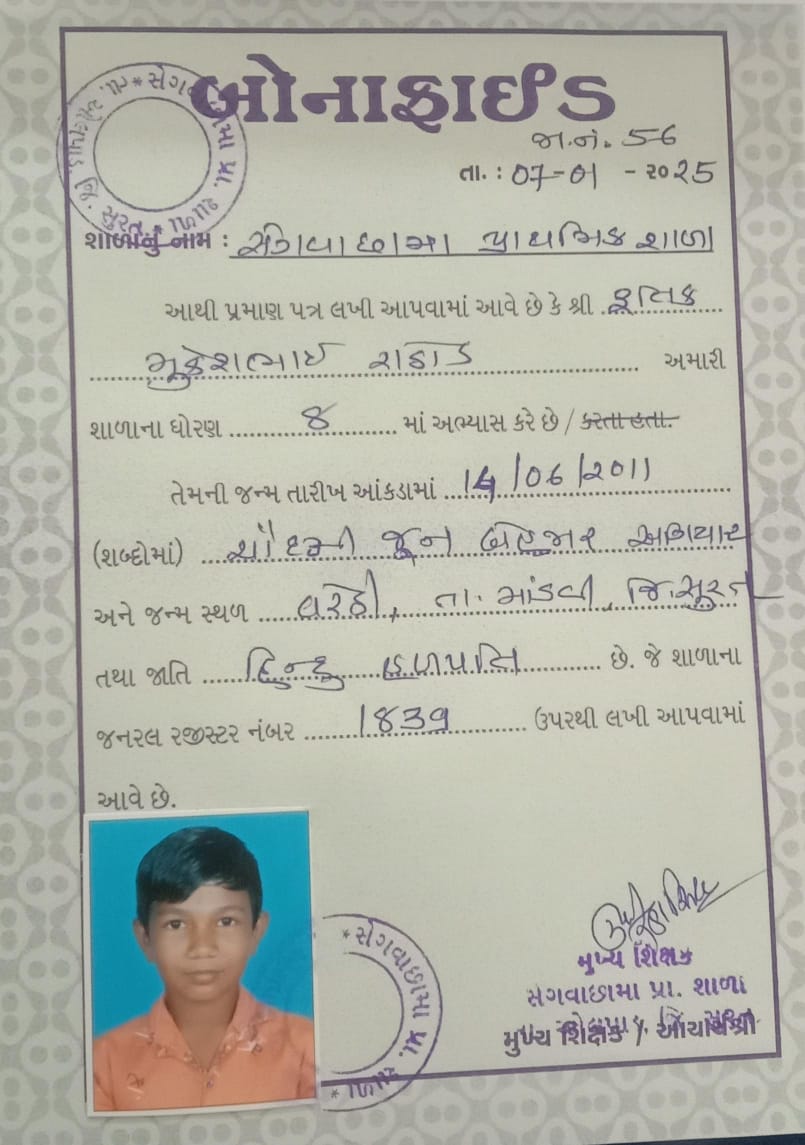 બોનાફાઈડ
જા.નં. 56
તા. : 07-01 - ૨૦25
શાળાનું નામ : સેગવાછામા પ્રાથમિક શાળા
આથી પ્રમાણ પત્ર લખી આપવામાં આવે છે કે શ્રી
મુકેશભાઈ રાઠોડ અમારી
શાળાના ધોરણ 8 માં અભ્યાસ કરે છે / કરતા હતા.
તેમની જન્મ તારીખ આંકડામાં 14/06/2011
(શબ્દોમાં) ચૌદમી જૂન બેહજાર અગિયાર
અને જન્મ સ્થળ વરેઠી, તા. માંડવી, જિ. સૂરત
તથા જાતિ હિન્દુ હળપતિ છે. જે શાળાના
જનરલ રજીસ્ટર નંબર 1839 ઉપરથી લખી આપવામાં
આવે છે.
મુખ્ય શિક્ષક
સેગવાછામા પ્રા. શાળા
મુખ્ય શિક્ષક / આચાર્યશ્રી
* સેગવાછામા પ્રા. શાળા * તા. ઓલપાડ જી. સુરત
* સેગવાછામા પ્રા. શાળા *